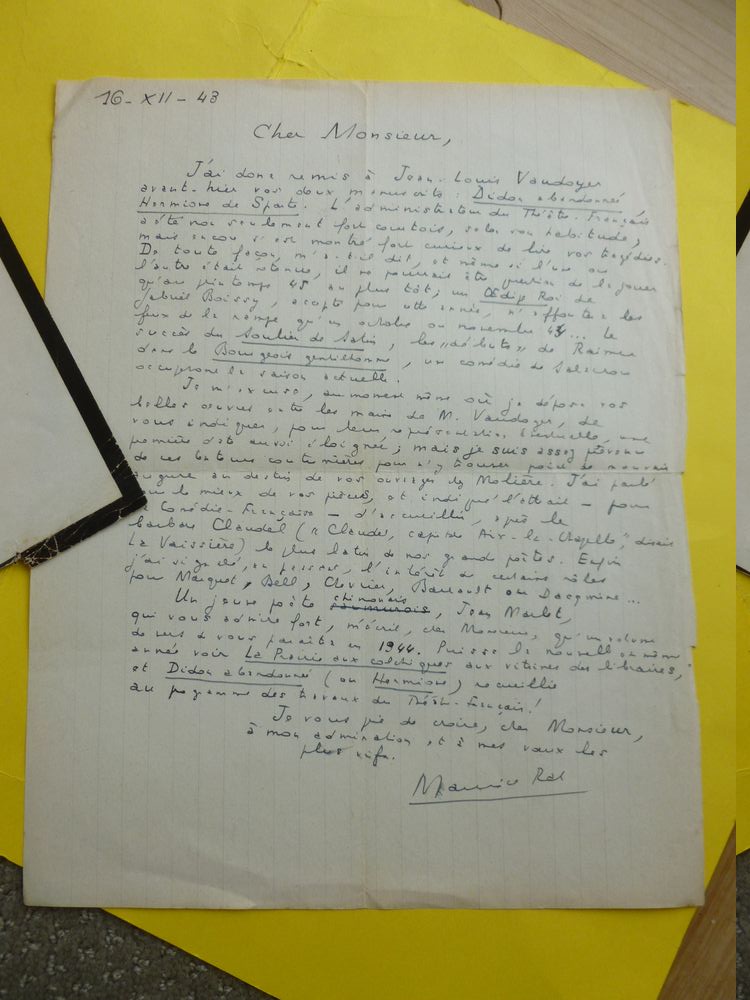 16 - XII - 43
Cher Monsieur,
J'ai donc remis à Jean-Louis Vaudoyer
avant-hier vos deux manuscrits : Didon abandonnée
Hermione de Sparte. L'administrateur du Théâtre-Français
a été non seulement fort courtois, selon son habitude,
mais encore s'est montré fort curieux de lire vos tragédies.
De toute façon, m'a-t-il dit, et même si l'une ou
l'autre était retenue, il ne pourrait être question de la jouer
qu'au printemps 45 au plus tôt; un Œdipe Roi de
Gabriel Boissy, accepté pour cette année, n'affrontera les
feux de la rampe qu'en octobre ou novembre 44... Le
succès du Soulier de Satin, les "débuts" de Raimu
dans le Bourgeois gentilhomme, une comédie de Salacrou
occuperont la saison actuelle.
Je m'excuse, au moment même où je dépose vos
belles œuvres entre les mains de M. Vaudoyer, de
vous indiquer, pour leur représentation éventuelle, une
première date aussi éloignée; mais je suis assez prévenu
de ces lenteurs coutumières pour n'y trouver point de mauvais
augure au destin de vos ouvrages chez Molière. J'ai parlé
pour le mieux de vos pièces, et indiqué l'attrait – pour
la Comédie-Française – d'accueillir, après le
barbare Claudel ("Claudel, capitale Aix-la-Chapelle", disait
La Vaissière) le plus latin de nos grands poètes. Enfin
j'ai signalé, en passant, l'intérêt de certains rôles
pour Marquet, Bell, Clevrier, Barrault ou Dacqmine...
Un jeune poète saumurois chinonais, Jean
qui vous admire fort, m'écrit, cher Monsieur, qu'un volume
de vers de vous paraîtra en 1944. Puisse la nouvelle
année voir La Prairie aux colchiques aux vitrines des libraires,
et Didon abandonnée (ou Hermione) recueillie
au programme des travaux du Théâtre-Français!
Je vous prie de croire, cher Monsieur,
à mon admiration et à mes vœux les
plus vifs.
Maurice Rat